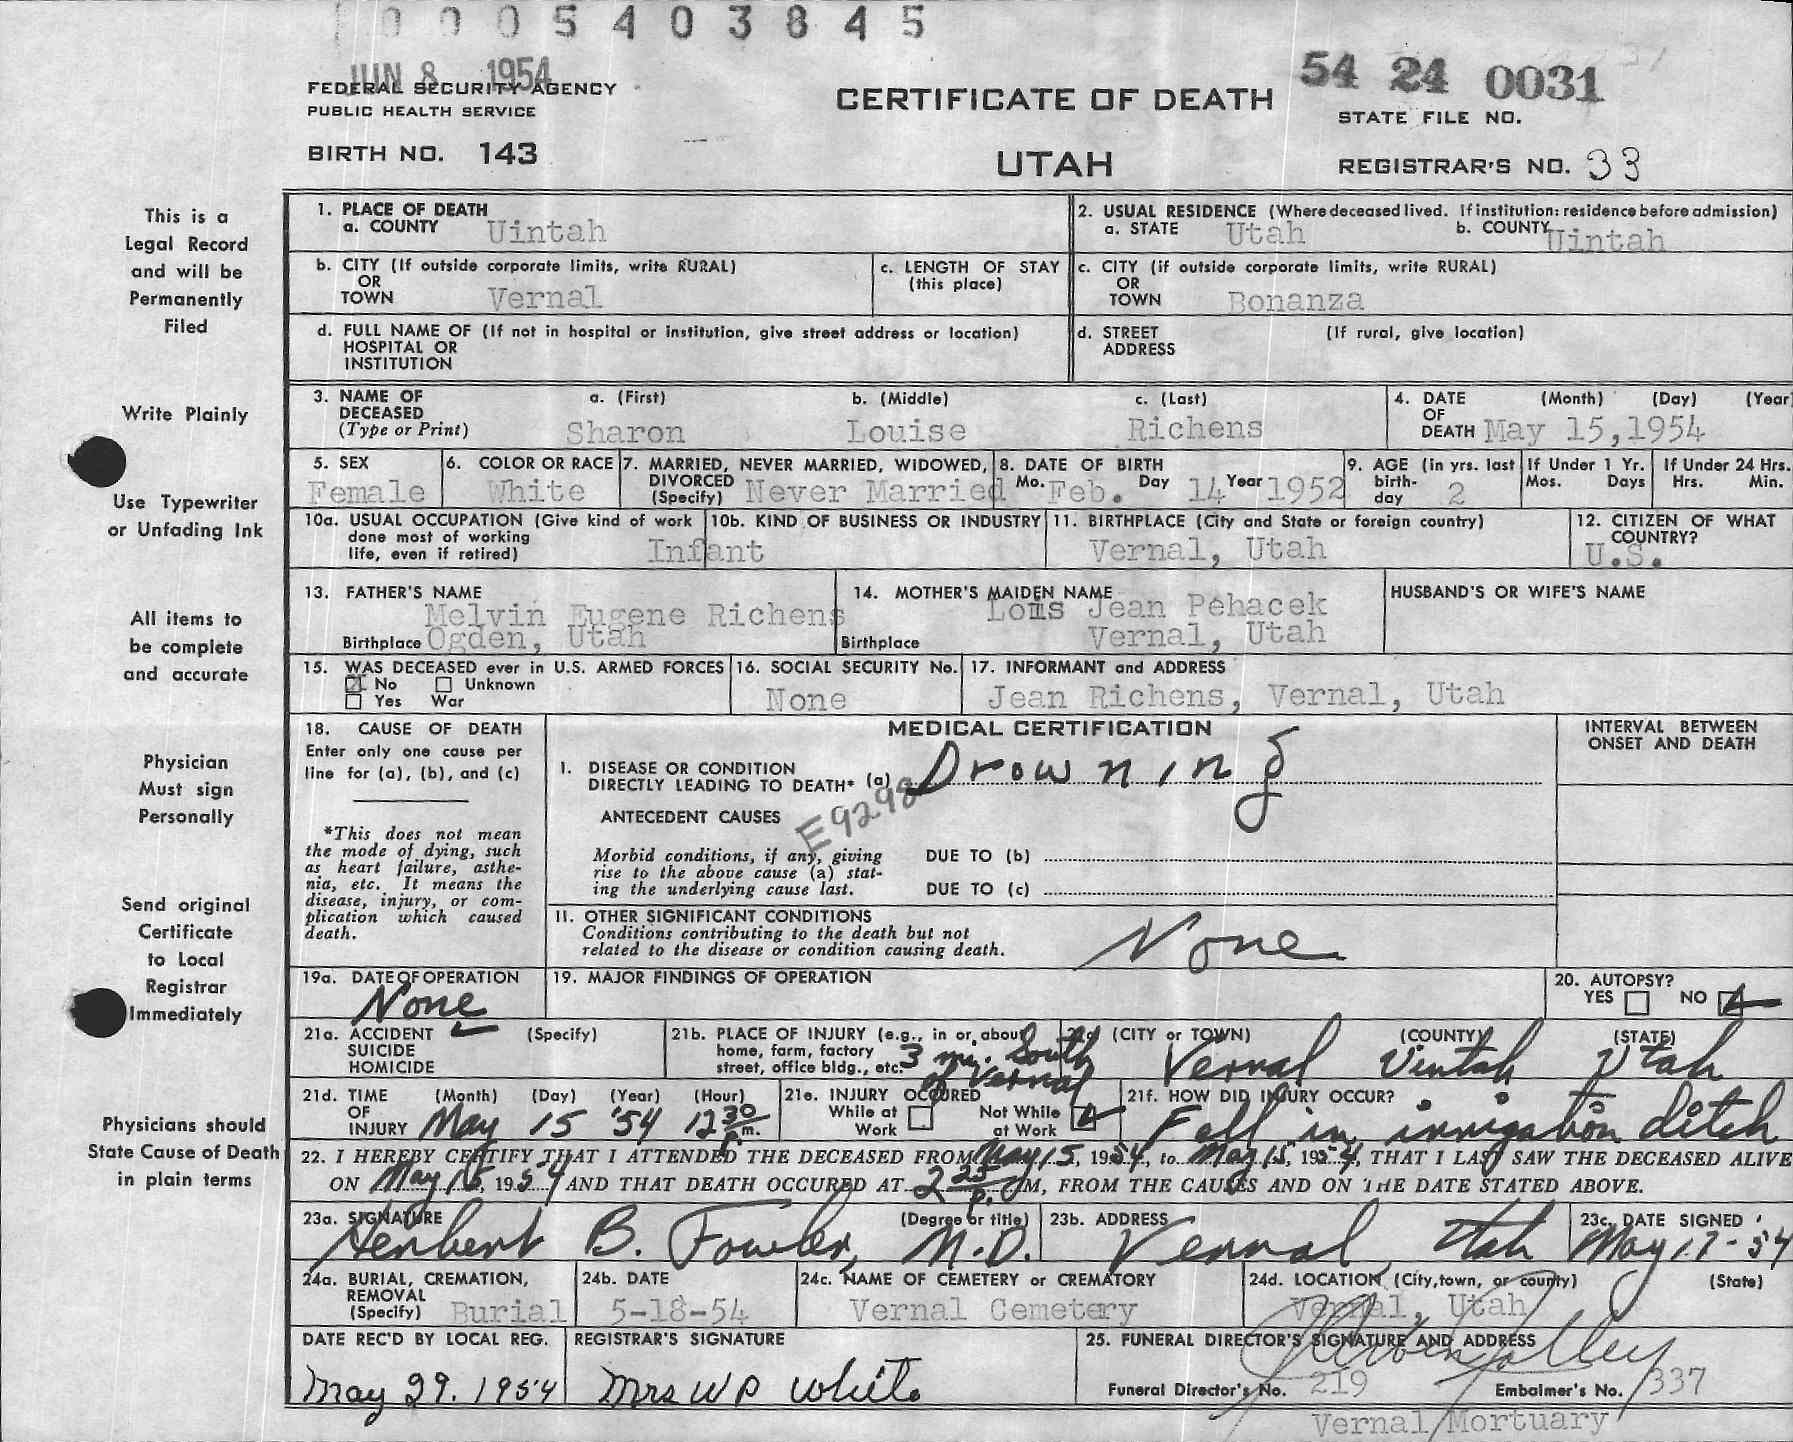 0005403845
JUN 8 1954
54 24 0031
FEDERAL SECURITY AGENCY
PUBLIC HEALTH SERVICE
CERTIFICATE OF DEATH
STATE FILE NO.
BIRTH NO. 143
UTAH
REGISTRAR'S NO. 33
This is a
Legal Record
and will be
Permanently
Filed
Write Plainly
Use Typewriter
or Unfading Ink
All items to
be complete
and accurate
Physician
Must sign
Personally
Send original
Certificate
to Local
Registrar
Immediately
Physicians should
State Cause of Death
in plain terms
1. PLACE OF DEATH
a. COUNTY Uintah
2. USUAL RESIDENCE (Where deceased lived. If institution: residence before admission)
a. STATE Utah b. COUNTY Uintah
b. CITY (If outside corporate limits, write RURAL)
OR
TOWN Vernal
c. LENGTH OF STAY
(this place)
c. CITY (if outside corporate limits, write RURAL)
OR
TOWN Bonanza
d. FULL NAME OF (If not in hospital or institution, give street address or location)
HOSPITAL OR
INSTITUTION
d. STREET (If rural, give location)
ADDRESS
3. NAME OF
DECEASED
(Type or Print)
a. (First) b. (Middle) c. (Last)
Sharon Louise Richens
4. DATE (Month) (Day) (Year
OF
DEATH May 15, 1954
5. SEX
Female
6. COLOR OR RACE
White
7. MARRIED, NEVER MARRIED, WIDOWED,
DIVORCED
(Specify) Never Married
8. DATE OF BIRTH
Mo. Feb. Day 14 Year 1952
9. AGE (in yrs. last
birth-
day 2
If Under 1 Yr.
Mos. Days
If Under 24 Hrs.
Hrs. Min.
10a. USUAL OCCUPATION (Give kind of work
done most of working
life, even if retired) Infant
10b. KIND OF BUSINESS OR INDUSTRY
11. BIRTHPLACE (City and State or foreign country)
Vernal, Utah
12. CITIZEN OF WHAT
COUNTRY?
U.S.
13. FATHER'S NAME
Melvin Eugene Richens
Birthplace Ogden, Utah
14. MOTHER'S MAIDEN NAME
Jean Pehacek
Birthplace Vernal, Utah
HUSBAND'S OR WIFE'S NAME
15. WAS DECEASED ever in U.S. ARMED FORCES
No Unknown
Yes War
16. SOCIAL SECURITY No.
None
17. INFORMANT and ADDRESS
Jean Richens, Vernal, Utah
18. CAUSE OF DEATH
Enter only one cause per
line for (a), (b), and (c)
*This does not mean
the mode of dying, such
as heart failure, asthe-
nia, etc. It means the
disease, injury, or com-
plication which caused
death.
MEDICAL CERTIFICATION
INTERVAL BETWEEN
ONSET AND DEATH
I. DISEASE OR CONDITION
DIRECTLY LEADING TO DEATH* (a) Drowning
E9298
ANTECEDENT CAUSES
Morbid conditions, if any, giving
rise to the above cause (a) stat-
ing the underlying cause last.
DUE TO (b)
DUE TO (c)
II. OTHER SIGNIFICANT CONDITIONS
Conditions contributing to the death but not
related to the disease or condition causing death.
None
19a. DATE OF OPERATION
None
19. MAJOR FINDINGS OF OPERATION
20. AUTOPSY?
YES NO
21a. ACCIDENT (Specify)
SUICIDE
HOMICIDE
21b. PLACE OF INJURY (e.g., in or about
home, farm, factory
street, office bldg., etc. 3 mi. South
of Vernal
(CITY or TOWN) (COUNTY) (STATE)
Vernal Uintah Utah
21d. TIME (Month) (Day) (Year) (Hour)
OF
INJURY May 15 '54 12 30 p.m.
21e. INJURY OCCURED
While at Work Not While at Work
21f. HOW DID INJURY OCCUR?
Fell in irrigation ditch
22. I HEREBY CERTIFY THAT I ATTENDED THE DECEASED FROM May 15, 1954, to May 15, 1954, THAT I LAST SAW THE DECEASED ALIVE
ON May 15, 1954 AND THAT DEATH OCCURED AT 2 25 p. M, FROM THE CAUSES AND ON THE DATE STATED ABOVE.
23a. SIGNATURE (Degree or title)
Herbert B. Fowler, M.D.
23b. ADDRESS
Vernal Utah
23c. DATE SIGNED
May 17-54
24a. BURIAL, CREMATION,
REMOVAL
(Specify) Burial
24b. DATE
5-18-54
24c. NAME OF CEMETERY or CREMATORY
Vernal Cemetery
24d. LOCATION (City, town, or county) (State)
Vernal, Utah
DATE REC'D BY LOCAL REG.
May 29. 1954
REGISTRAR'S SIGNATURE
Mrs W P White
25. FUNERAL DIRECTOR'S SIGNATURE AND ADDRESS
Funeral Director's No. 219 Embalmer's No. 337
Vernal Mortuary